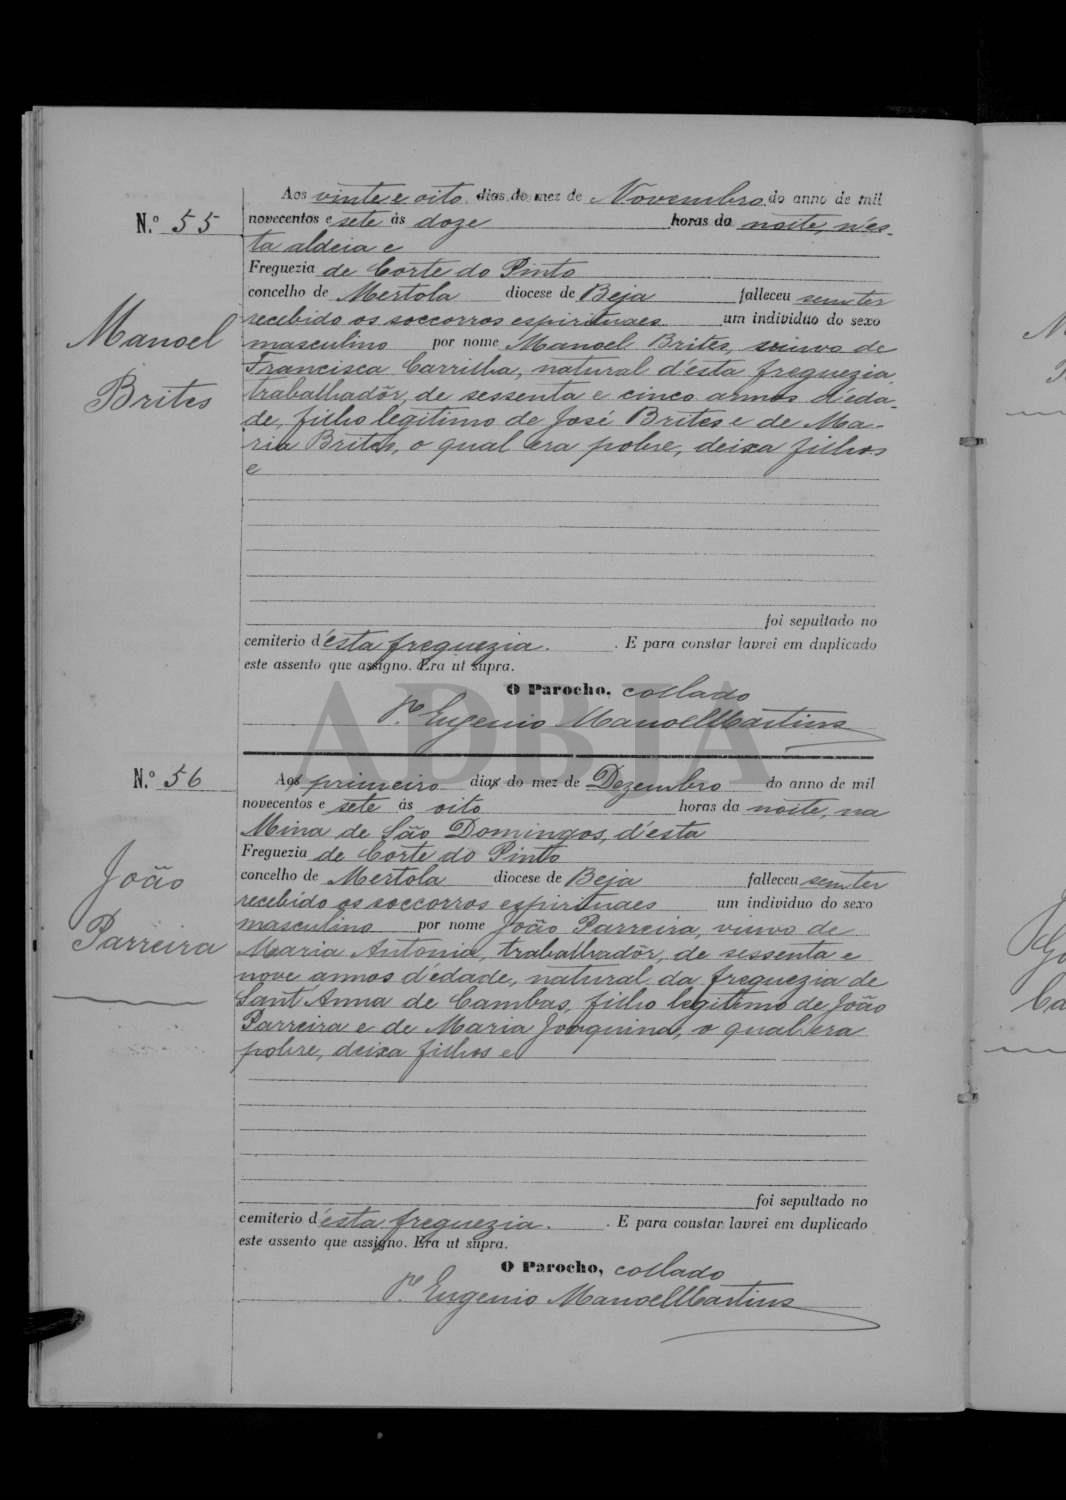 Aos vinte e oito dias do mez de Novembro do anno de mil
N.º 55
novecentos e sete ás doze horas da noite, n'es-
ta aldeia e
Freguezia de Corte do Pinto
concelho de Mertola diocese de Beja falleceu sem ter
recebido os soccorros espirituaes um individuo do sexo
Manoel
Brites
masculino por nome Manoel Brites, viuvo de
Francisca Carrilha, natural d'ésta freguezia,
trabalhadôr, de sessenta e cinco annos d'éda-
de, filho legitimo de José Brites e de Ma-
ria Brites, o qual era pobre, deixa filhos
e
foi sepultado no
cemiterio d'ésta freguezia. . E para constar lavrei em duplicado
este assento que assigno. Era ut supra.
O Parocho, collado
P.e Eugenio Manoel Martins
ADBJA
N.º 56
Aos primeiro dias do mez de Dezembro do anno de mil
novecentos e sete ás oito horas da noite, na
Mina de São Domingos, d'ésta
Freguezia de Corte do Pinto
concelho de Mertola diocese de Beja falleceu sem ter
João
Parreira
recebido os soccorros espirituaes um individuo do sexo
masculino por nome João Parreira, viuvo de
Maria Antonia, trabalhadôr, de sessenta e
nove annos d'édade, natural da freguezia de
Sant'Anna de Cambas, filho legitimo de João
Parreira e de Maria Joaquina, o qual era
pobre, deixa filhos e
foi sepultado no
cemiterio d'ésta freguezia. . E para constar lavrei em duplicado
este assento que assigno. Era ut supra.
O Parocho, collado
P.e Eugenio Manoel Martins